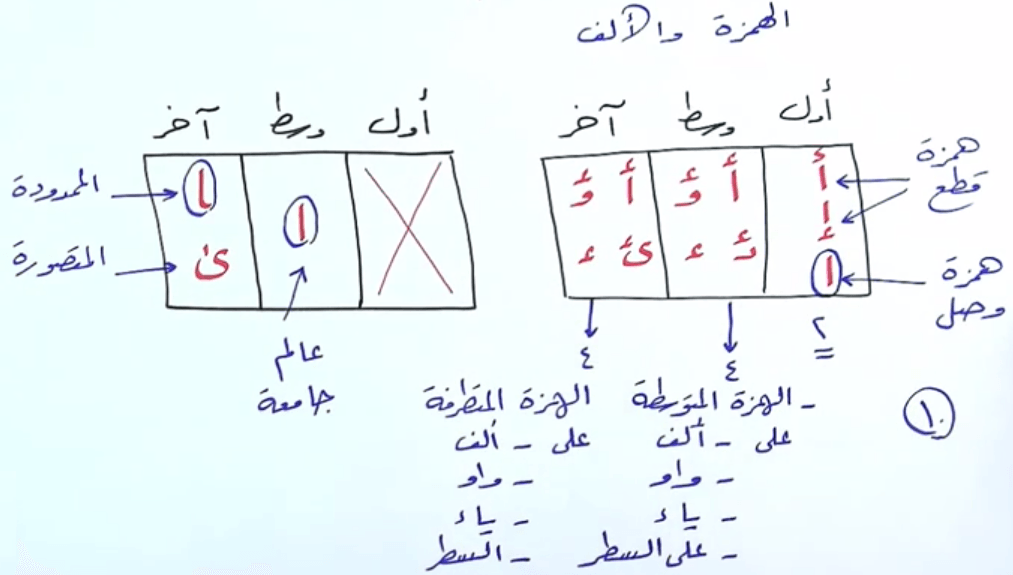 الهمزة والألف
أول وسط آخر
أ أ ؤ أ ؤ
إ ئـ ء ئ ء
ا
همزة
قطع
همزة
وصل
٢
٤
٤
أول وسط آخر
ا ا
ى
الممدودة
المقصورة
عالم
جامعة
- الهزة المتوسطة
على - ألف
- واو
- ياء
- على السطر
الهزة المتطرفة
على - ألف
- واو
- ياء
- السطر
١٠